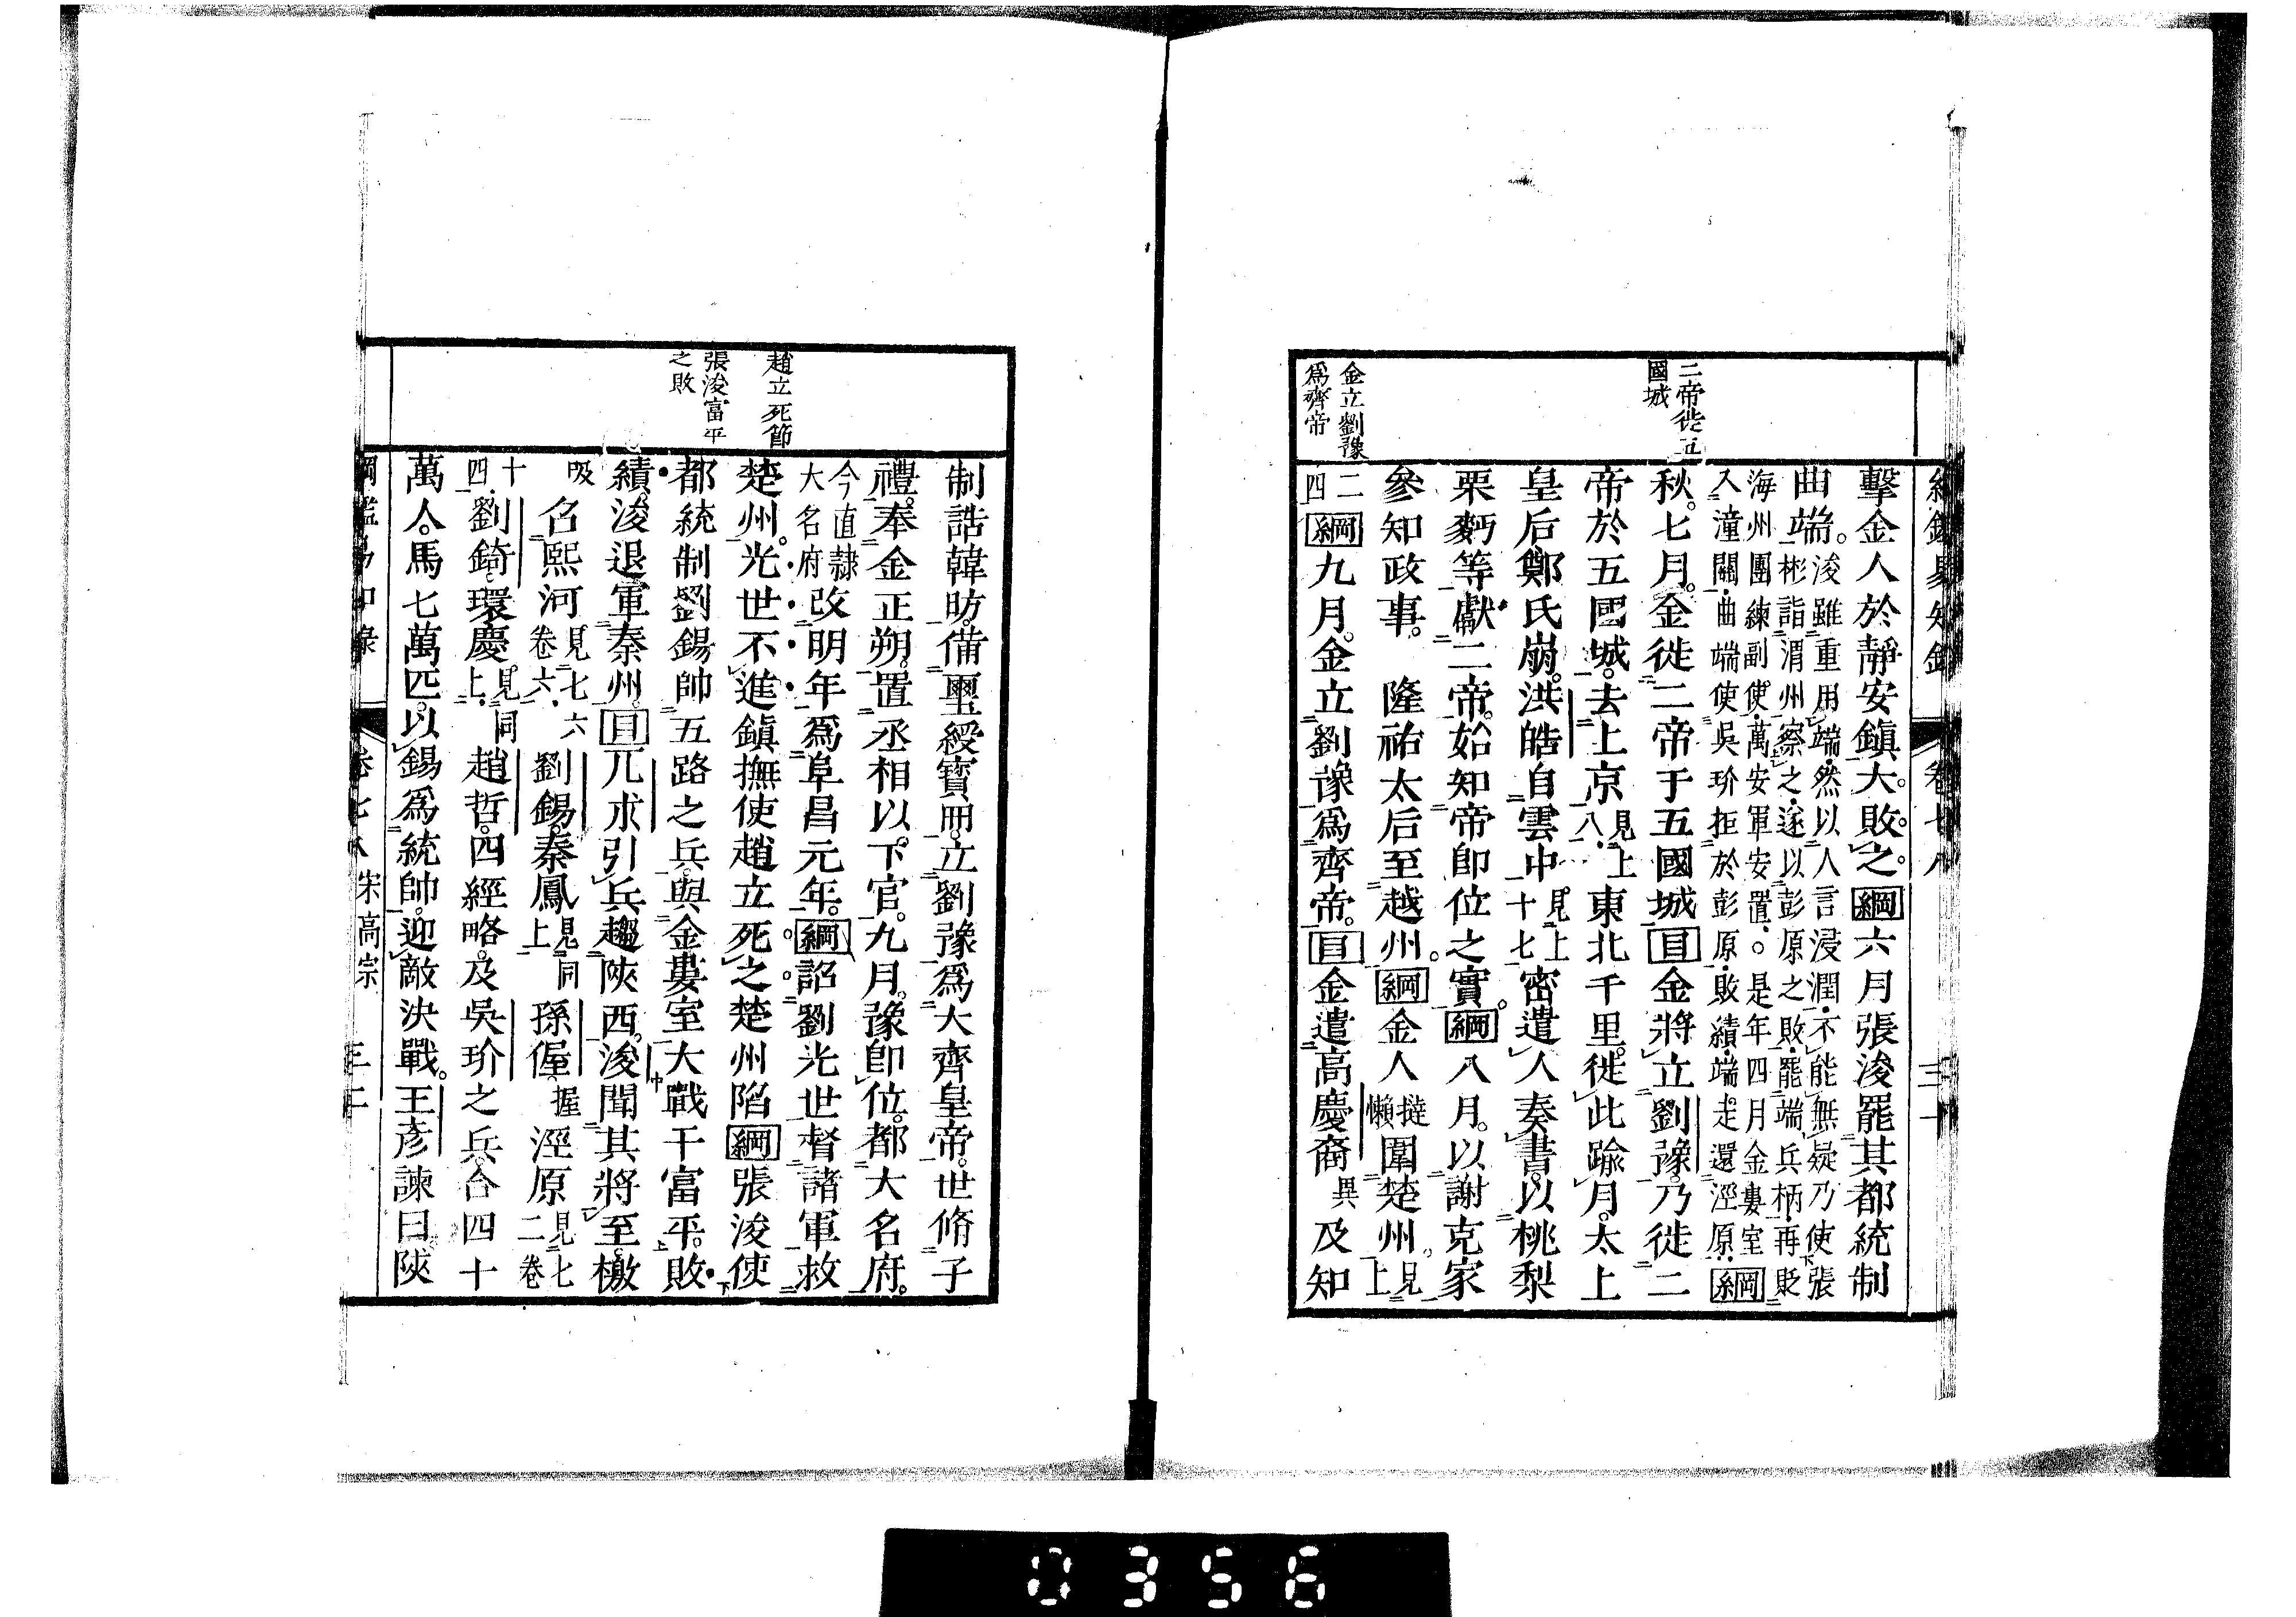 二帝徙五
國城
金立劉豫
爲齊帝
擊金人於靜安鎭大敗之綱六月張浚罷其都統制
曲端浚雖重用端然以人言浸潤不能無疑乃使張
彬詣渭州察之遂以彭原之敗罷端兵柄再貶
海州團練副使萬安軍安置○是年四月金婁室
入潼關曲端使吳玠拒於彭原敗績端走還涇原綱
秋七月金徙二帝于五國城目金將立劉豫乃徙二
帝於五國城去上京見上八一東北千里徙此踰月太上
皇后鄭氏崩洪皓自雲中見上十七密遣人奏書以桃梨
栗麪等獻二帝始知帝卽位之實綱八月以謝克家
參知政事 隆祐太后至越州綱金人撻懶圍楚州見上
二四綱九月金立劉豫爲齊帝目金遣高慶裔異及知
卷七八
趙立死節
張浚富平
之敗
制誥韓昉備璽綬寶冊立劉豫爲大齊皇帝世脩子
禮奉金正朔置丞相以下官九月豫卽位都大名府
今直隸大名府改明年爲阜昌元年綱詔劉光世督諸軍救
楚州光世不進鎭撫使趙立死之楚州陷綱張浚使
都統制劉錫帥五路之兵與金婁室大戰于富平敗
績浚退軍秦州目兀朮引兵趨陝西浚聞其將至檄
召熙河見七六卷六劉錫秦鳳見同上孫偓握涇原見七二卷
十四劉錡環慶見同上趙哲四經略及吳玠之兵合四十
萬人馬七萬匹以錫爲統帥迎敵決戰王彥諫曰陝
卷七八 宋高宗
0356